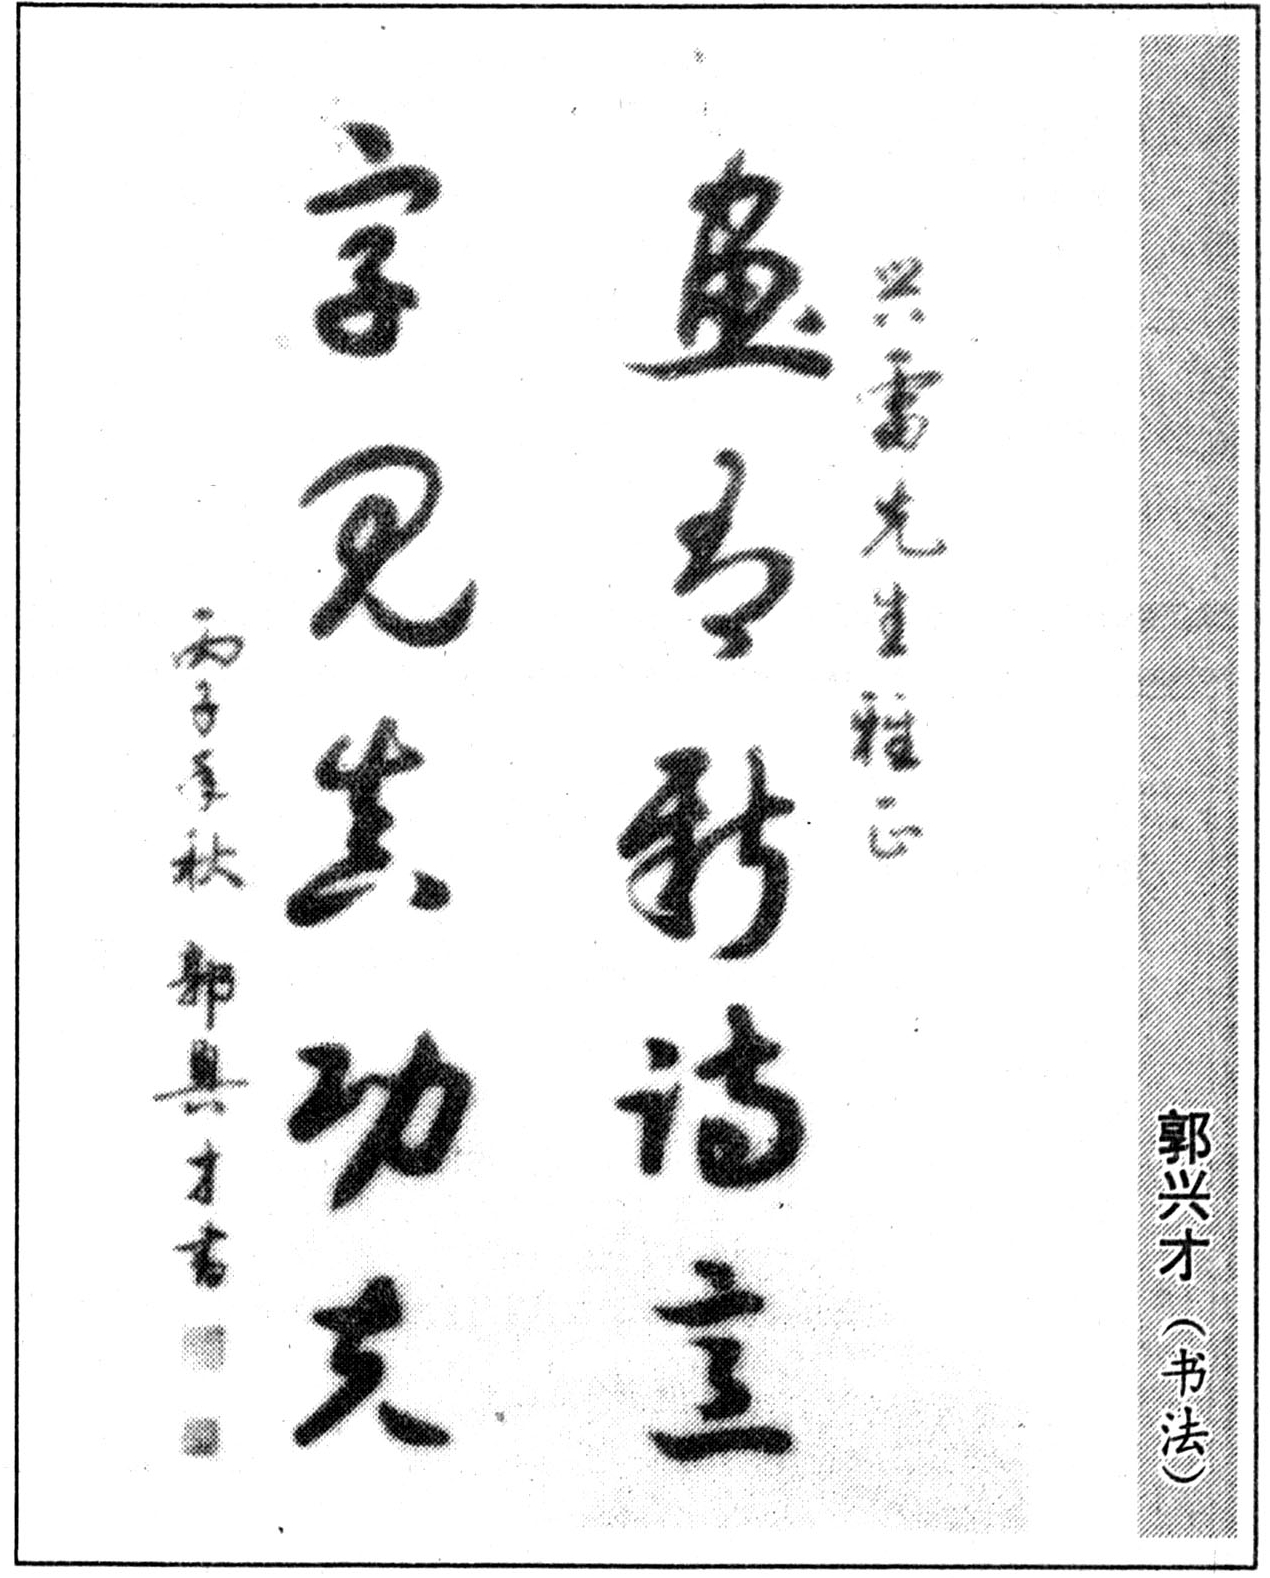 郭兴才（书法）
兴雷先生雅正
畫有新诗意
字见真功夫
丙子年秋 郭興才书